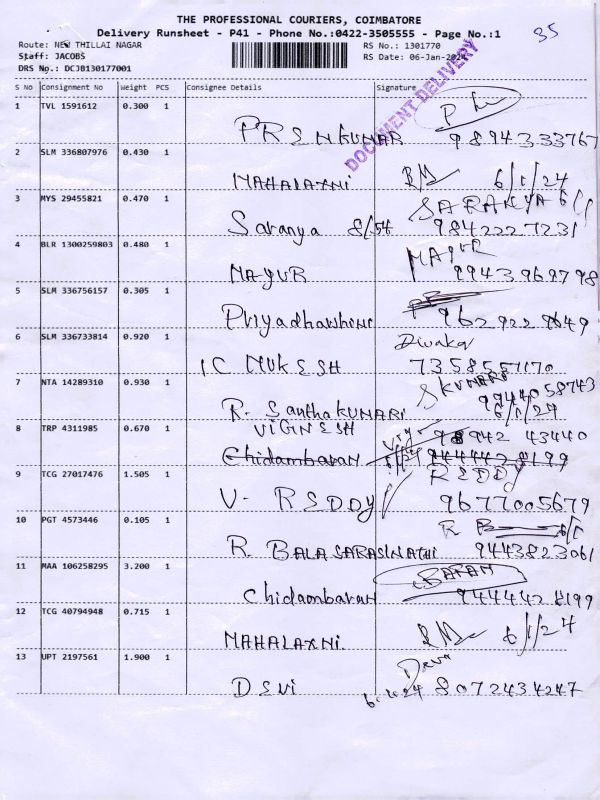 THE PROFESSIONAL COURIERS, COIMBATORE
35
Delivery Runsheet - P41 - Phone No.:0422-3505555 - Page No.:1
Route: NEW THILLAI NAGAR RS No.: 1301770
Staff: JACOBS RS Date: 06-Jan-2024
DRS No.: DCJB130177001
DOCUMENT DELIVERY
S No Consignment No Weight PCS Consignee Details Signature
1 TVL 1591612 0.300 1
PREMKUMAR 9894333767
2 SLM 336807976 0.430 1
MAHALAXMI 6/1/24
3 MYS 29455821 0.470 1 SARANYA 6/1
Saranya 8/56 9842227231
4 BLR 1300259803 0.480 1 MAYUR
MAYUR 9943969798
5 SLM 336756157 0.305 1
Priyadharshini 9629229649
6 SLM 336733814 0.920 1 Diwakar
IC MUKESH 7358557170
7 NTA 14289310 0.930 1 S KUMARI 9944058743
R. Santhakumari 6/1/24
8 TRP 4311985 0.670 1 VIGNESH 98942 43440
Chidambaran 9444428199
9 TCG 27017476 1.505 1 REDDY
V. REDDY 9677005679
10 PGT 4573446 0.105 1 R 6/1
R. BALASARASWATHI 9443823061
11 MAA 106258295 3.200 1
Chidambaran 9444428199
12 TCG 40794948 0.715 1
MAHALAXMI 6/1/24
13 UPT 2197561 1.900 1 Devi
DEVI 6.1.24 8072434247